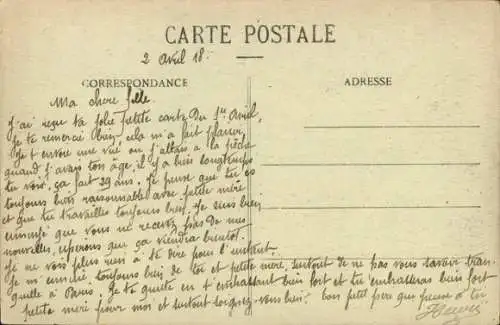 CARTE POSTALE
2 Avril 18.
CORRESPONDANCE
ADRESSE
Ma chere fille
J'ai reçu ta jolie petite carte du 1er Avril,
je te remercie bien, cela m'a fait plaisir,
je t'envoie une vue ou j'allais a la pêche
quand j'avais ton âge, il y a bien longtemps
tu vois, ça fait 29 ans. Je pense que tu es
toujours bien raisonnable avec petite mère
et que tu travailles toujours bien. Je suis bien
ennuyé que vous ne recevez pas de mes
nouvelles, esperons que ça viendra bientot.
Je ne vois plus rien à te dire pour l'instant.
Je m'ennuie toujours bien de toi et petite mère, surtout de ne pas vous savoir tran-
quille à Paris. Je te quitte en t'embrassant bien fort et tu embrasseras bien fort
petite mère pour moi et surtout soignez-vous bien. Ton petit père qui pense à toi